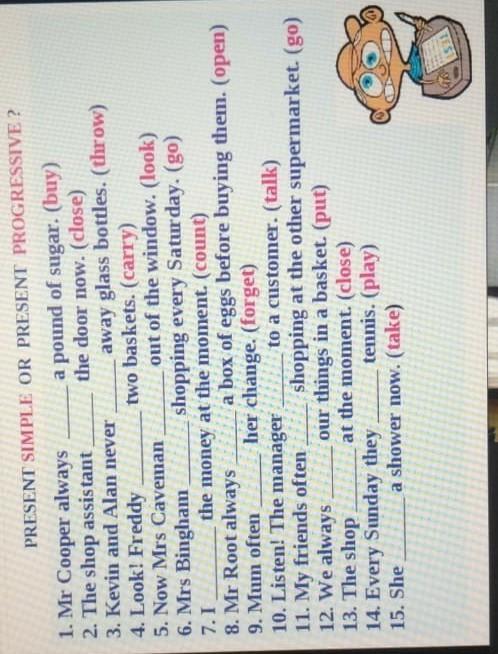 PRESENT SIMPLE OR PRESENT PROGRESSIVE ?
1. Mr Cooper always ______ a pound of sugar. (buy)
2. The shop assistant ______ the door now. (close)
3. Kevin and Alan never ______ away glass bottles. (throw)
4. Look! Freddy ______ two baskets. (carry)
5. Now Mrs Caveman ______ out of the window. (look)
6. Mrs Bingham ______ shopping every Saturday. (go)
7. I ______ the money at the moment. (count)
8. Mr Root always ______ a box of eggs before buying them. (open)
9. Mum often ______ her change. (forget)
10. Listen! The manager ______ to a customer. (talk)
11. My friends often ______ shopping at the other supermarket. (go)
12. We always ______ our things in a basket. (put)
13. The shop ______ at the moment. (close)
14. Every Sunday they ______ tennis. (play)
15. She ______ a shower now. (take)